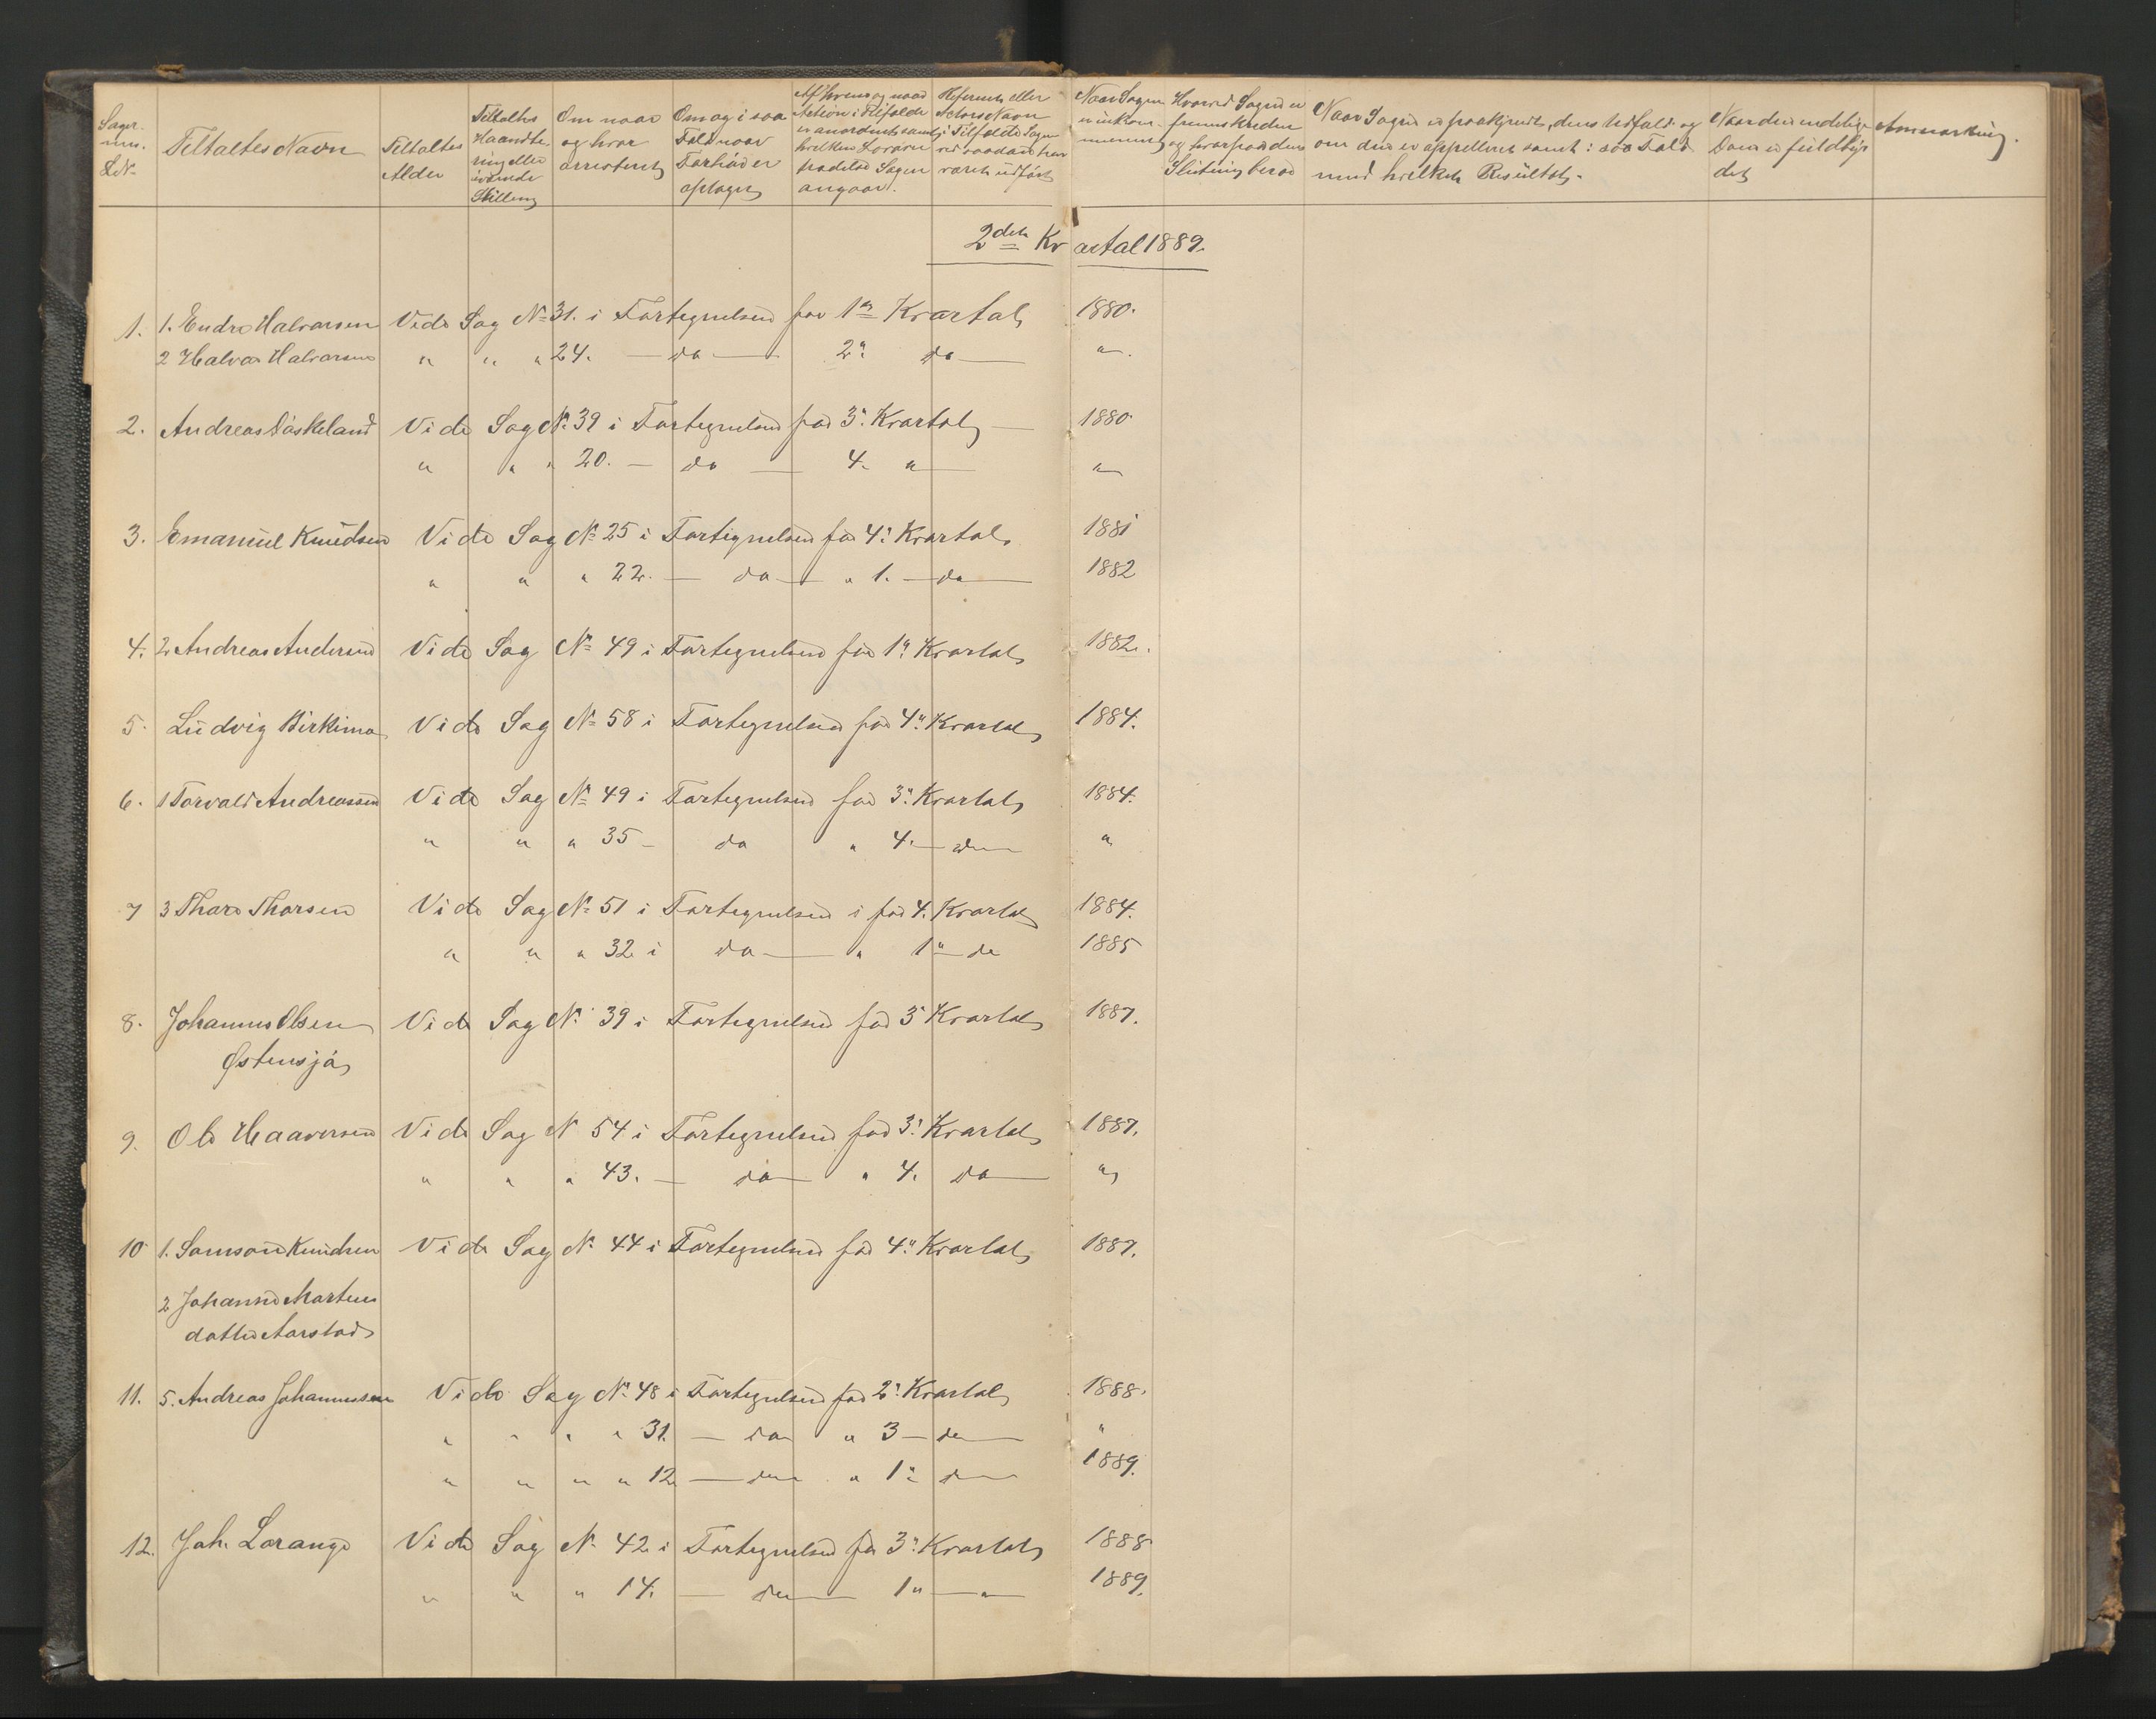 Sager-
nes.
L.N.
Tiltaltes Navn
Tiltaltes
Alder
Tiltaltes
Haandte-
ring eller
øvrige
Stilling
Om naar
og hvor
arresteret
Om og i saa
Fald naar
Forhør er
optaget
Af hvem og naar
Aktion i Tilfælde
er anordnet samt
hvilken Lovover-
trædelse Sagen
angaar.
Referents eller
Actors Navn
i Tilfælde Sagen
ved saadan har
været udført
Naar Sagen
er inkom-
mennet
Hvorvid Sagen er
fremskreden
og hvorpaa dens
Slutning beror
Naar Sagen er paakjendt, dens Udfald og
om den er appelleret samt i saa Fald
med hvilket Resultat.
Naar den endelige
Dom er fuldbyr
det
Anmærkning.
2det Kvartal 1889.
1. 1. Endre Halvorsen Vide Sag No 31. i Fortegnelsen for 1ste Kvartal 1880.
2 Halvor Halvorsen " " " 24. — do — 2" do — "
2. Andreas Vaskeland Vide Sag No 39 i Fortegnelsen for 3" Kvartal — 1880
" " " 20. — do — 4. " — "
3. Emanuel Knudsen Vide Sag No 25 i Fortegnelsen for 4" Kvartal 1881
" " " 22. — do — " 1. — do — 1882
4. 2 Andreas Andersen Vide Sag No 49 i Fortegnelsen for 1" Kvartal 1882.
5. Ludvig Birkimo Vide Sag No 58 i Fortegnelsen for 4" Kvartal 1884.
6. 1 Torvald Andreassen Vide Sag No 49 i Fortegnelsen for 3" Kvartal 1884.
" " " 35 — do " 4. — do — "
7 3 Thore Thorsen Vide Sag No 51 i Fortegnelsen i for 4. Kvartal 1884.
" " " 32 i do — " 1" — do 1885
8. Johannes Olsen Vide Sag No 39 i Fortegnelsen for 3" Kvartal 1887.
Østensjø
9. Ole Haaversen Vide Sag N 54 i Fortegnelsen for 3" Kvartal 1887.
" " " 43. — do — " 4. do — "
10 1. Samson Knudsen Vide Sag No 44 i Fortegnelsen for 4" Kvartal 1887.
2 Johanne Marten
datter Aarstad
11. 5. Andreas Johannessen Vide Sag No 48 i Fortegnelsen for 2" Kvartal 1888.
" " " " 31. — do " 3 — do — "
" " " " 12 — do — " 1" do — 1889.
12. Joh. Lorange Vide Sag No 42 i Fortegnelsen for 3" Kvartal 1888
" " " 14. — do — 1" — " — 1889.